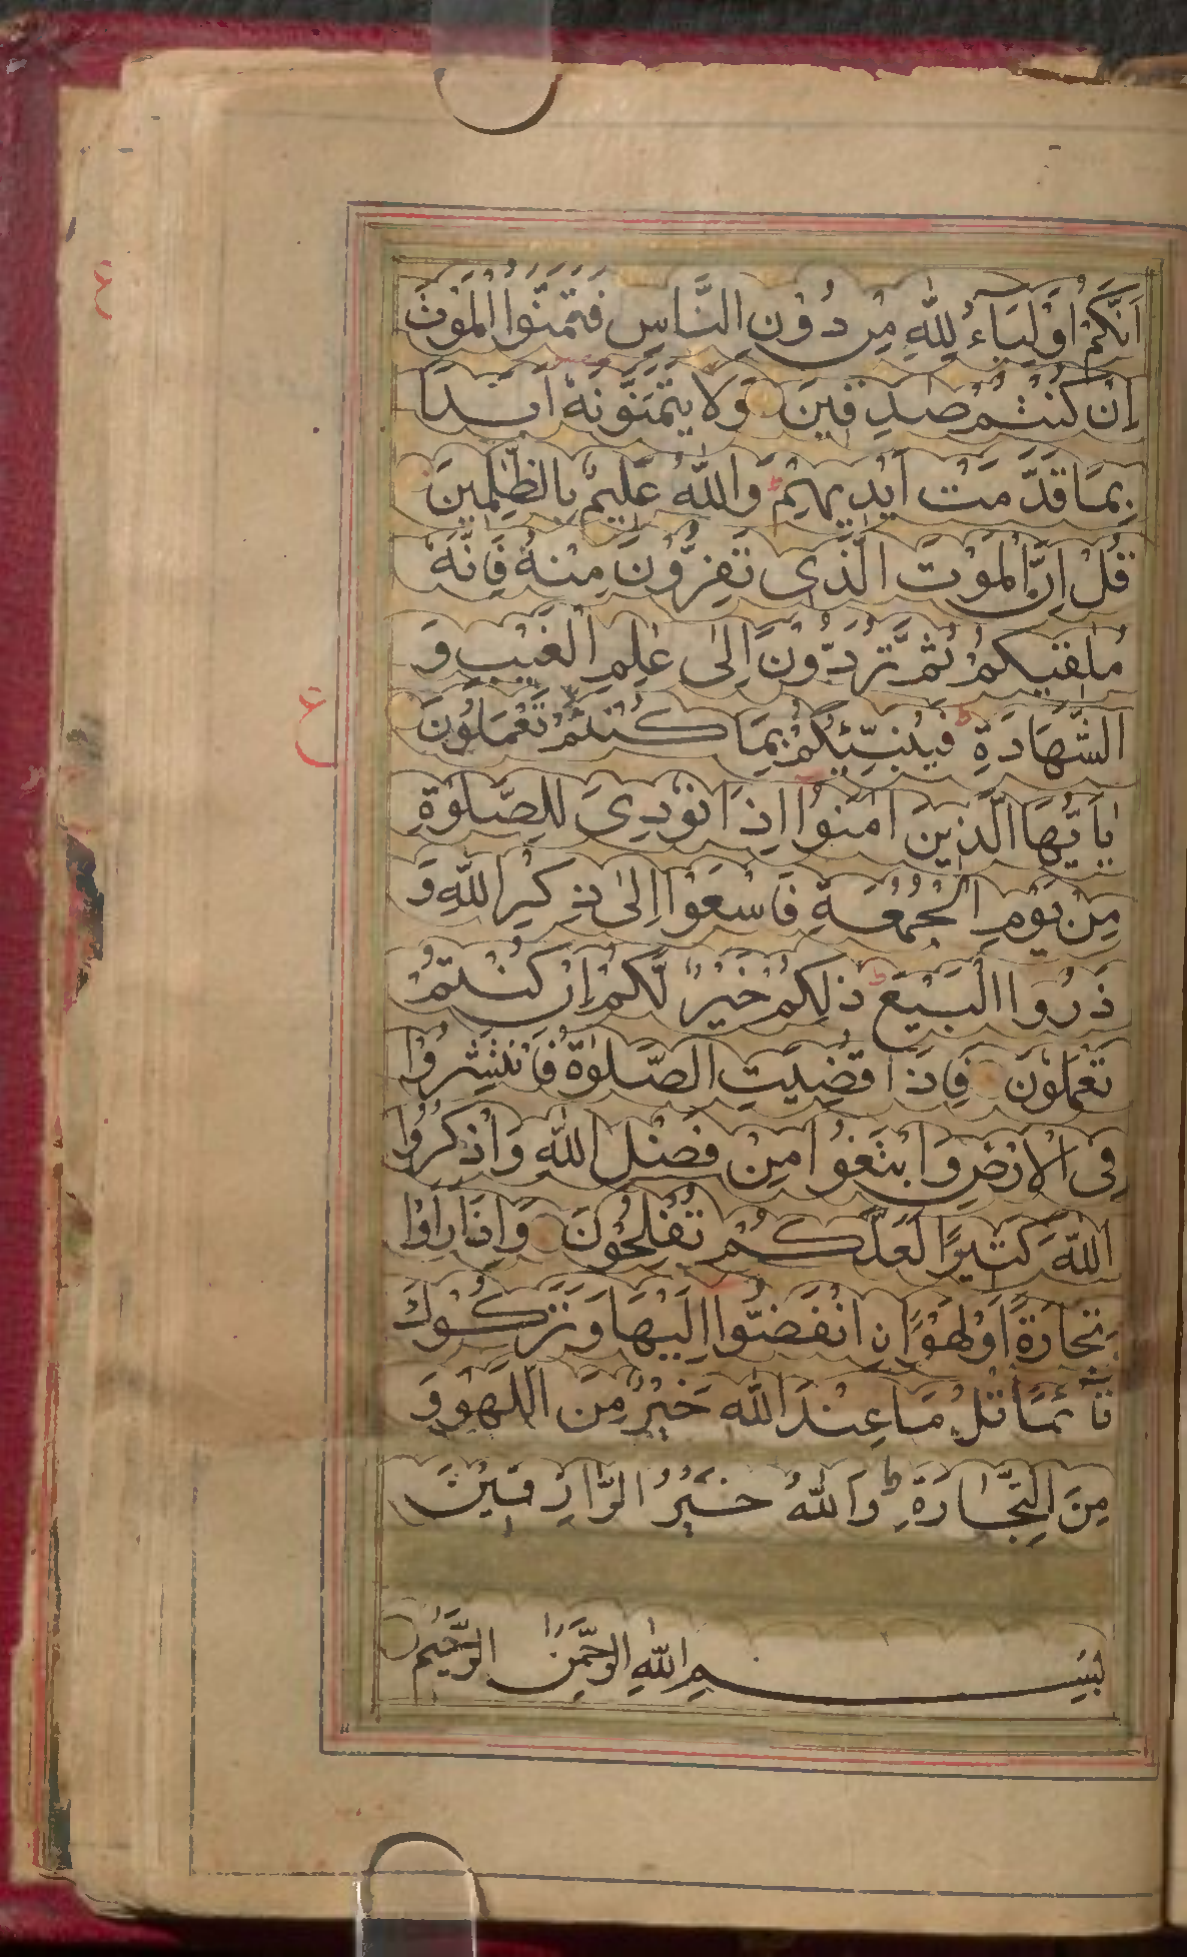 اَنَّكُمْ اَوْلِيَاۤءُ لِلّٰهِ مِنْ دُوْنِ النَّاسِ فَتَمَنَّوُا الْمَوْتَ
اِنْ كُنْتُمْ صٰدِقِيْنَ وَلَا يَتَمَنَّوْنَهٗ اَبَدًا
بِمَا قَدَّمَتْ اَيْدِيْهِمْ ط وَاللّٰهُ عَلِيْمٌ بِالظّٰلِمِيْنَ
قُلْ اِنَّ الْمَوْتَ الَّذِى تَفِرُّوْنَ مِنْهُ فَاِنَّهٗ
مُلٰقِيْكُمْ ثُمَّ تُرَدُّوْنَ اِلٰى عٰلِمِ الْغَيْبِ وَ
الشَّهَادَةِ ط فَيُنَبِّئُكُمْ بِمَا كُنْتُمْ تَعْمَلُوْنَ
يٰاَيُّهَا الَّذِيْنَ اٰمَنُوْا اِذَا نُوْدِىَ لِلصَّلٰوةِ
مِنْ يَوْمِ الْجُمُعَةِ فَاسْعَوْا اِلٰى ذِكْرِ اللّٰهِ وَ
ذَرُوا الْبَيْعَ ط ذٰلِكُمْ خَيْرٌ لَّكُمْ اِنْ كُنْتُمْ
تَعْمَلُوْنَ فَاِذَا قُضِيَتِ الصَّلٰوةُ فَانْتَشِرُوْا
فِى الْاَرْضِ وَابْتَغُوْا مِنْ فَضْلِ اللّٰهِ وَاذْكُرُوا
اللّٰهَ كَثِيْرًا لَّعَلَّكُمْ تُفْلِحُوْنَ وَاِذَا رَاَوْا
تِجَارَةً اَوْ لَهْوًا نِ انْفَضُّوْا اِلَيْهَا وَتَرَكُوْكَ
قَاۤئِمًا قُلْ مَا عِنْدَ اللّٰهِ خَيْرٌ مِّنَ اللَّهْوِ وَ
مِنَ التِّجَارَةِ ط وَاللّٰهُ خَيْرُ الرَّازِقِيْنَ
بِسْمِ اللّٰهِ الرَّحْمٰنِ الرَّحِيْمِ
ع
ع